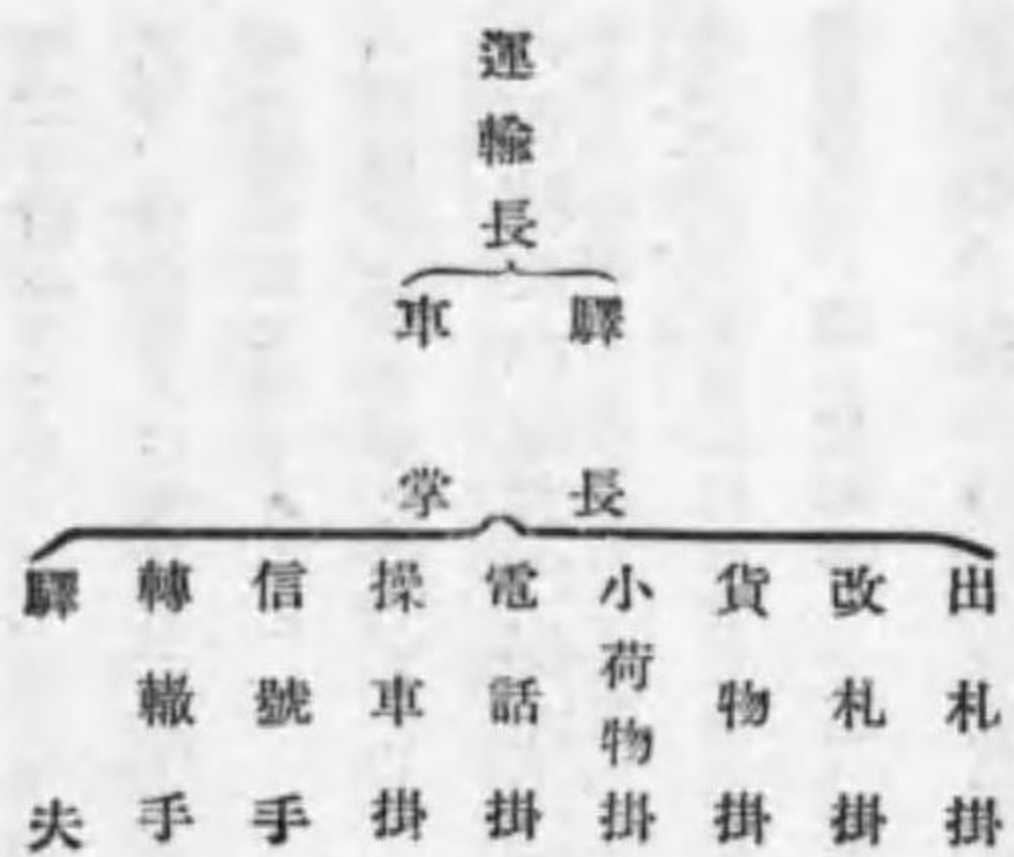 運輸長
驛長
車掌
出札掛
改札掛
貨物掛
小荷物掛
電話掛
操車掛
信號手
轉轍手
驛夫